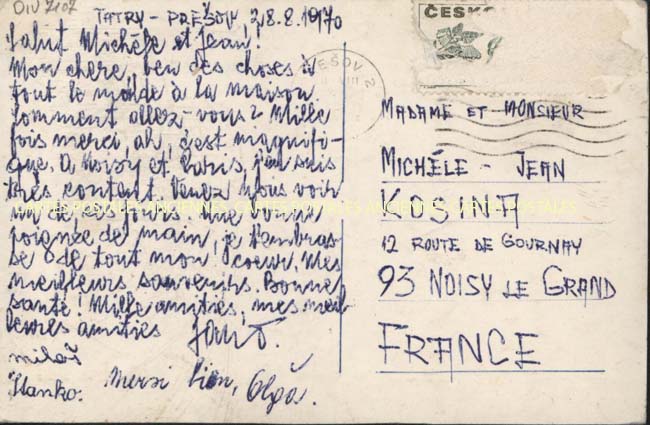 DIV 7207
TATRY - PREŠOV 28.8.1970
Salut Michèle et Jean!
Mon chere, ben des choses à
tout le monde à la maison.
Comment allez-vous? Mille
fois merci, ah, c'est magnifi-
que. A Noisy et Paris, j'en suis
très contant. Venez nous voir
un de ces jours. Une bonne
poignée de main, je t'embras-
se de tout mon coeur. Mes
meilleurs souvenirs. Bonne
santé! Mille amitiés, mes meil-
leures amitiés
Milaš
Stanko.
Mersi bien, Olga.
ČESKO
PREŠOV 2
MADAME ET MONSIEUR
MICHÈLE - JEAN
KOSINA
12 ROUTE DE GOURNAY
93 NOISY LE GRAND
FRANCE